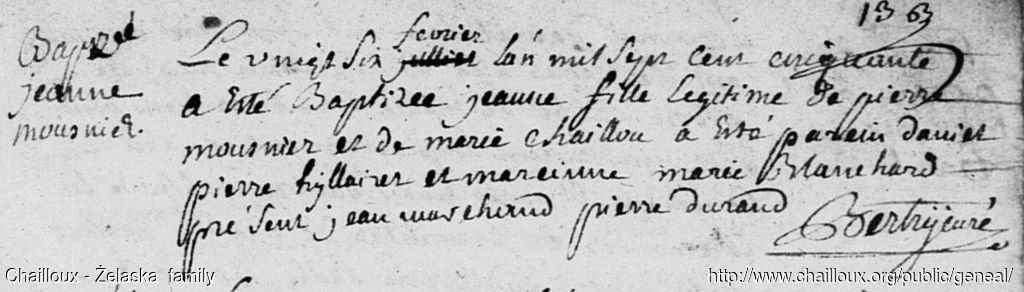 133
Baptizé
jeanne
mousnier.
Le vingt six février lan mil sept cent cinquante
a Esté Baptizee jeanne fille Legitime de pierre
mousnier et de marie chaillou a Esté parein daniel
pierre hyllairet et mareinne marie Blanchard
présent jean pierre durand
Chailloux - Żelaska family
http://www.chailloux.org/public/geneal/